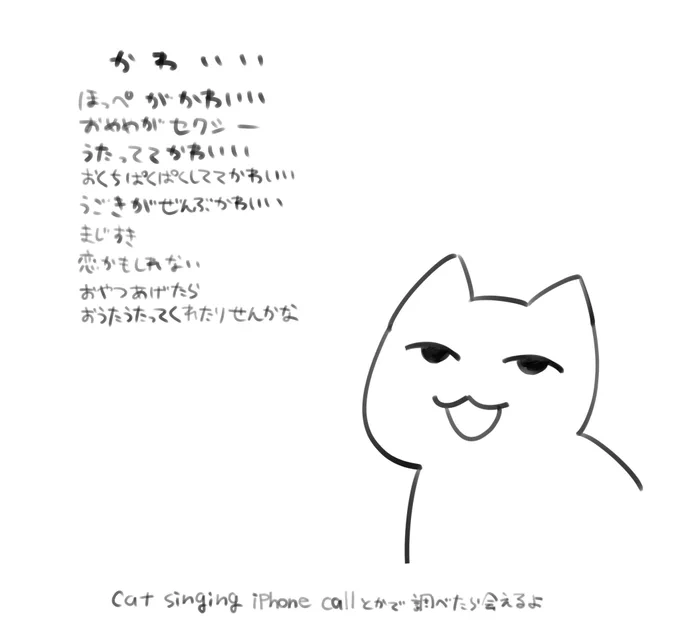 かわいい
ほっぺがかわいい
おめめがセクシー
うたっててかわいい
おくちぱくぱくしててかわいい
うごきがぜんぶかわいい
まじすき
恋かもしれない
おやつあげたら
おうたうたってくれたりせんかな
Cat singing iPhone callとかで調べたら会えるよ